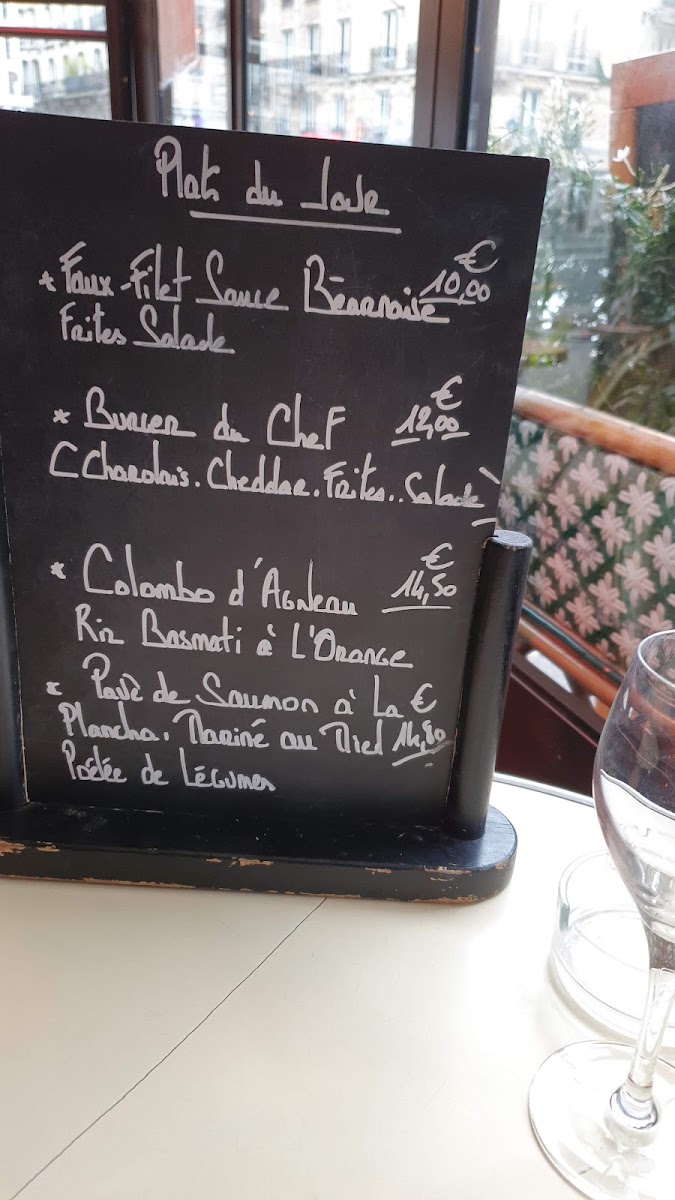 Plats du Jour
* Faux-Filet Sauce Béarnaise 10,00 €
Frites Salade
* Burger du Chef 12,00 €
(Charolais. Cheddar. Frites.. Salade)
* Colombo d'Agneau 14,50 €
Riz Basmati à L'Orange
* Pavé de Saumon à La €
Plancha. Mariné au Miel 14,80
Poêlée de Légumes